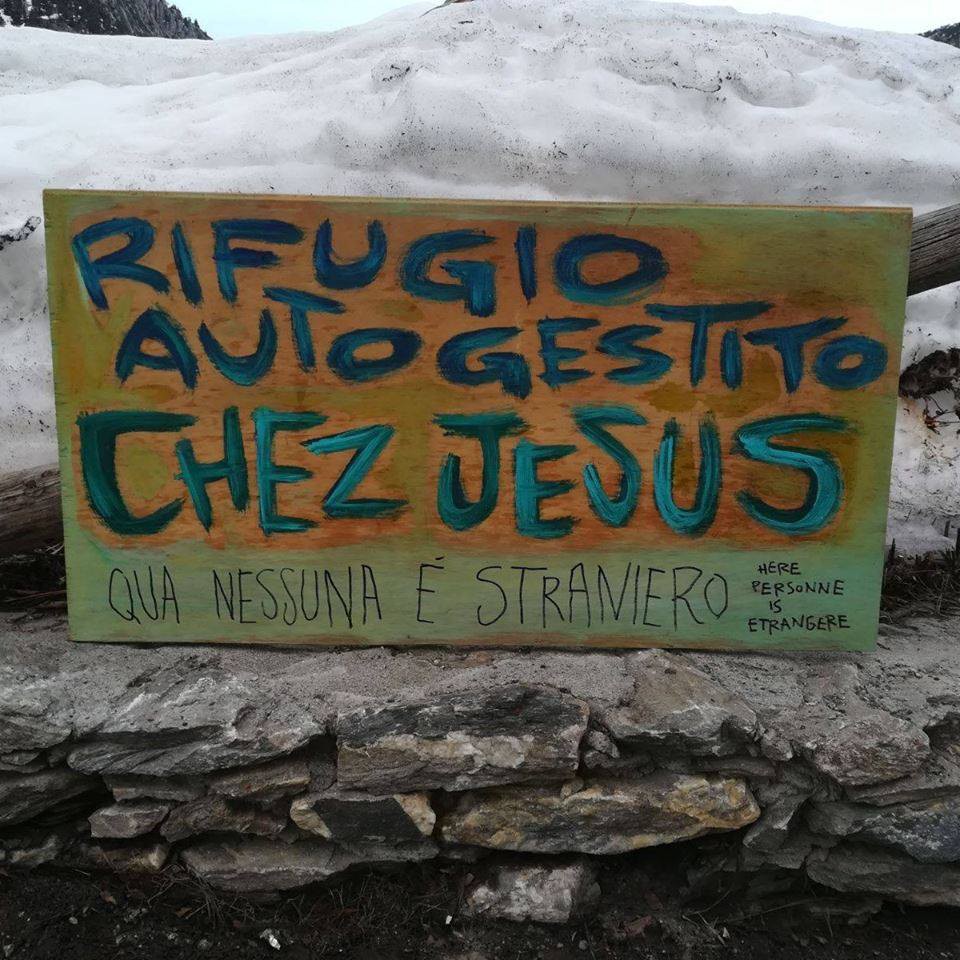 RIFUGIO
AUTOGESTITO
CHEZ JESUS
QUA NESSUNA É STRANIERO
HERE
PERSONNE
IS
ETRANGERE